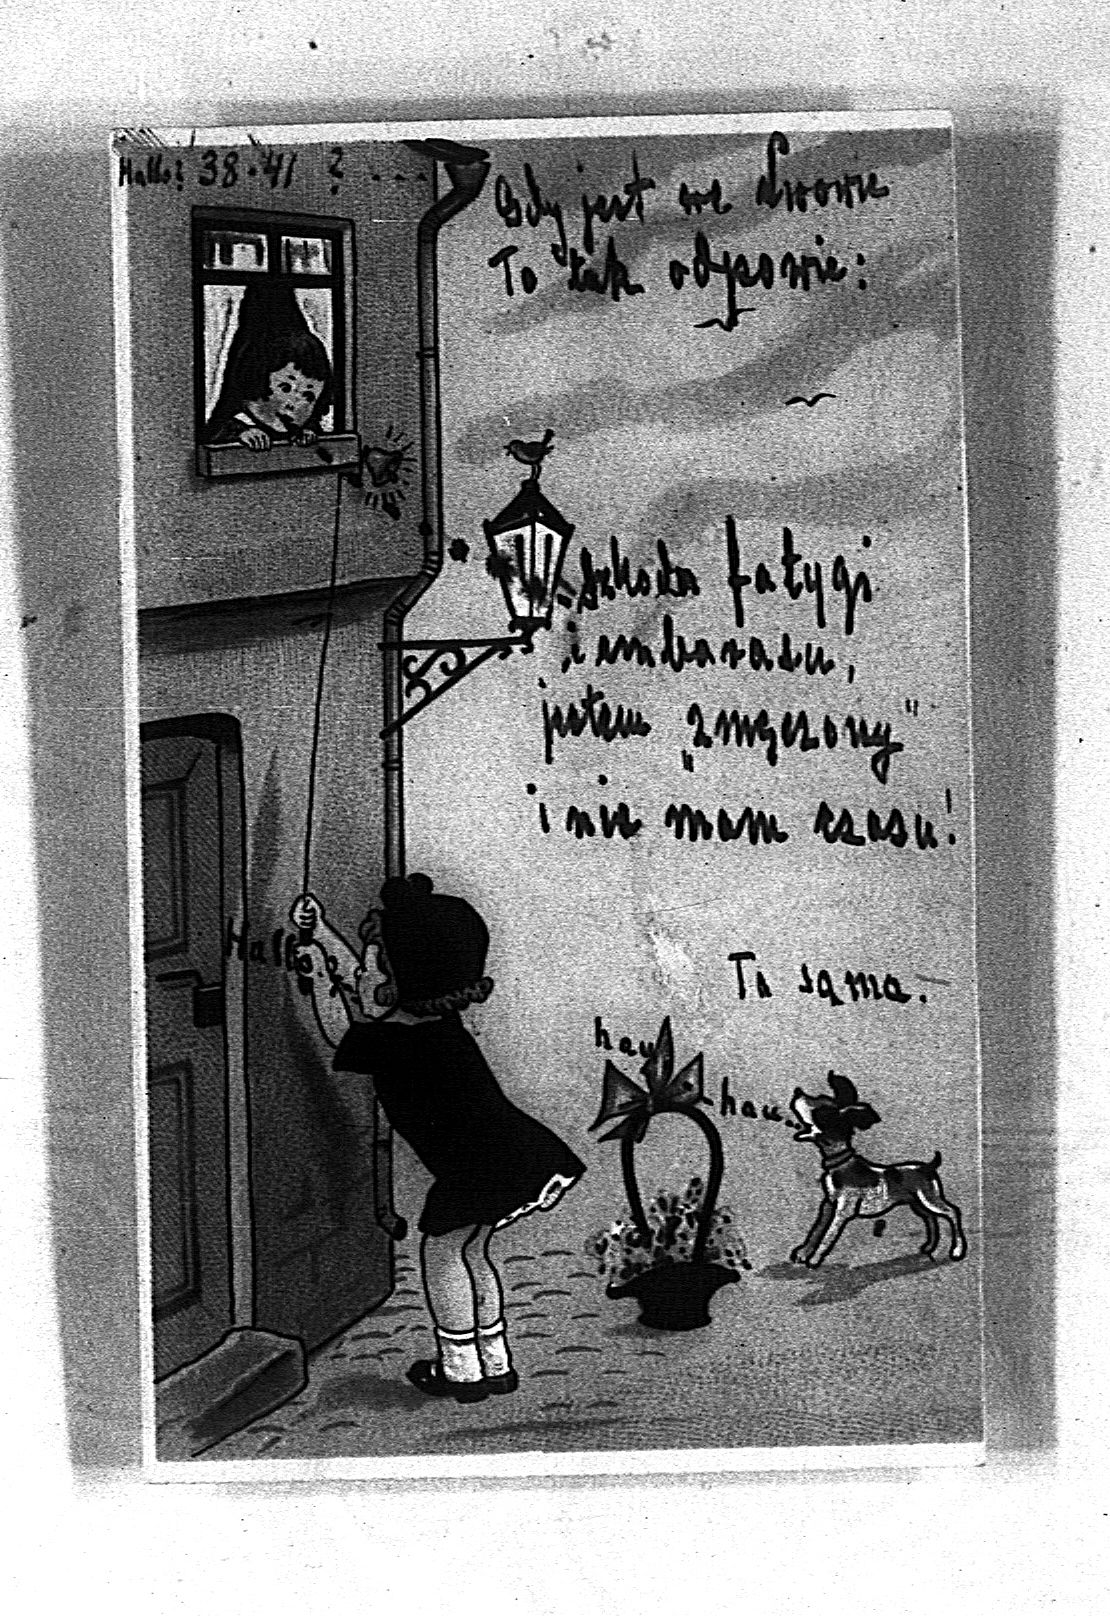 Hallo! 38-41 ? ....
Gdy jest we Lwowie
To tak odpowie:
Szkoda fatygi
i ambarasu,
jestem „zmęczony"
i nie mam czasu!
Hallo
Ta sama.
hau
hau..